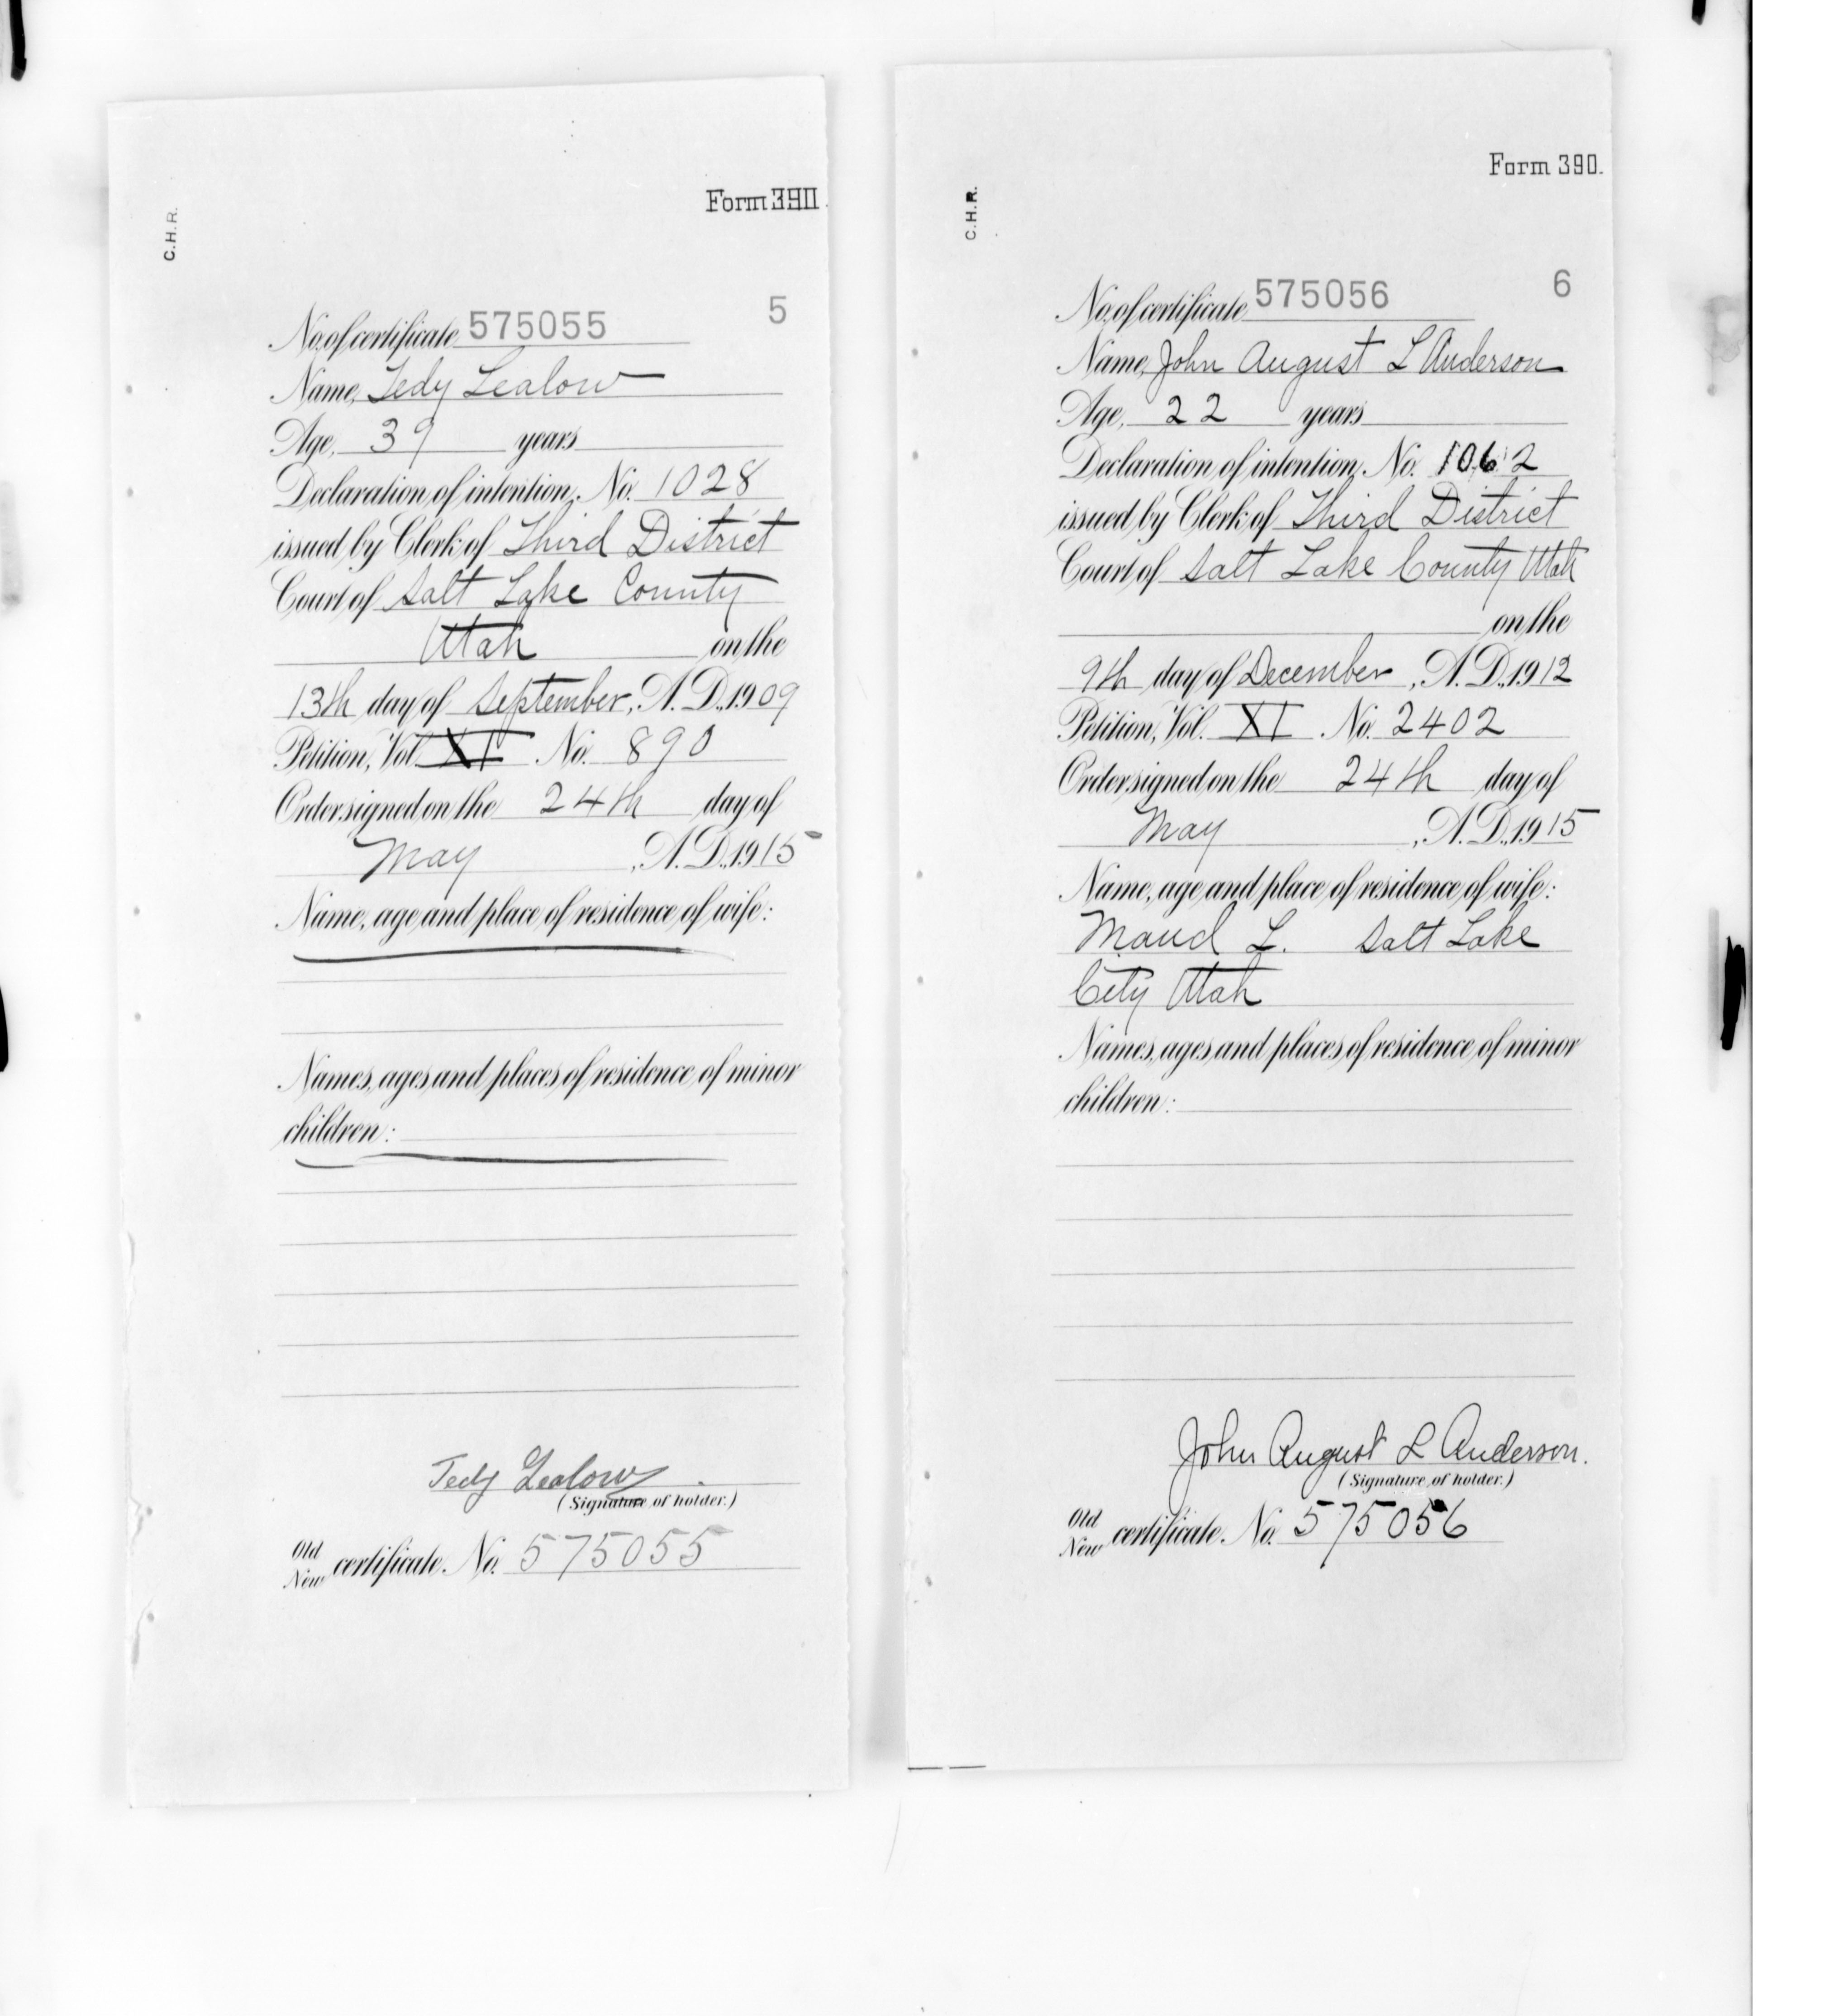 C.H.R.
Form 390.
5
No. of certificate, 575055
Name, Tedy Lealow
Age, 39 years
Declaration of intention, No. 1028
issued by Clerk of Third District
Court of Salt Lake County
Utah on the
13th day of September, A. D., 1909
Petition, Vol. XI No. 890
Order signed on the 24th day of
May, A. D., 1915
Name, age and place of residence of wife:
Names, ages and places of residence of minor
children:
Tedy Lealow
(Signature of holder.)
Old
New certificate. No. 575055
C.H.R.
Form 390.
6
No. of certificate, 575056
Name, John August L Anderson
Age, 22 years
Declaration of intention, No. 1062
issued by Clerk of Third District
Court of Salt Lake County Utah
on the
9th day of December, A. D., 1912
Petition, Vol. XI No. 2402
Order signed on the 24th day of
May, A. D., 1915
Name, age and place of residence of wife:
Maud L. Salt Lake
City Utah
Names, ages and places of residence of minor
children:
John August L Anderson.
(Signature of holder.)
Old
New certificate. No. 575056